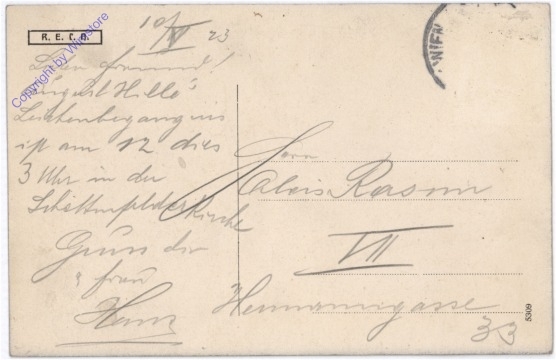 R. E. C. O.
Copyright by Winstore
WIEN
10/IV 23
Lieber Freund!
August Hille's
Leichenbegängnis
ist am 12 dies
3 Uhr in der
Schottenfelderkirche
Gruss dir
u Frau
Hans
Herrn
Alois Rasim
VII
Hermanngasse
33
5309